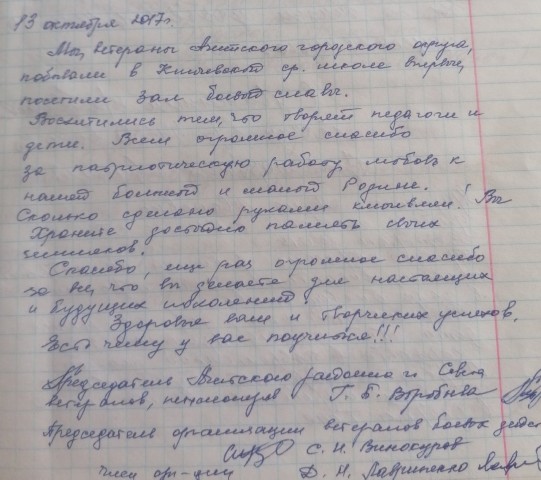 13 октября 2017г.
Мы, ветераны Ачитского городского округа,
побывали в Ключевской ср. школе впервые,
посетили зал боевой славы.
Восхитились тем, что творят педагоги и
дети. Всем огромное спасибо
за патриотическую работу, любовь к
нашей большой и малой Родине.
Сколько сделано руками умелыми! Вы
храните достойно память своих
земляков.
Спасибо, еще раз огромное спасибо
за все, что вы делаете для настоящих
и будущих поколений
Здоровья вам и творческих успехов.
Есть чему у вас поучиться!!!
Председатель Ачитского районного Совета
ветеранов, пенсионеров Г. Б.
Председатель организации ветеранов боевых дейст
С. Н. Винокуров
Член орг-ции Д. Н. Лавриненко